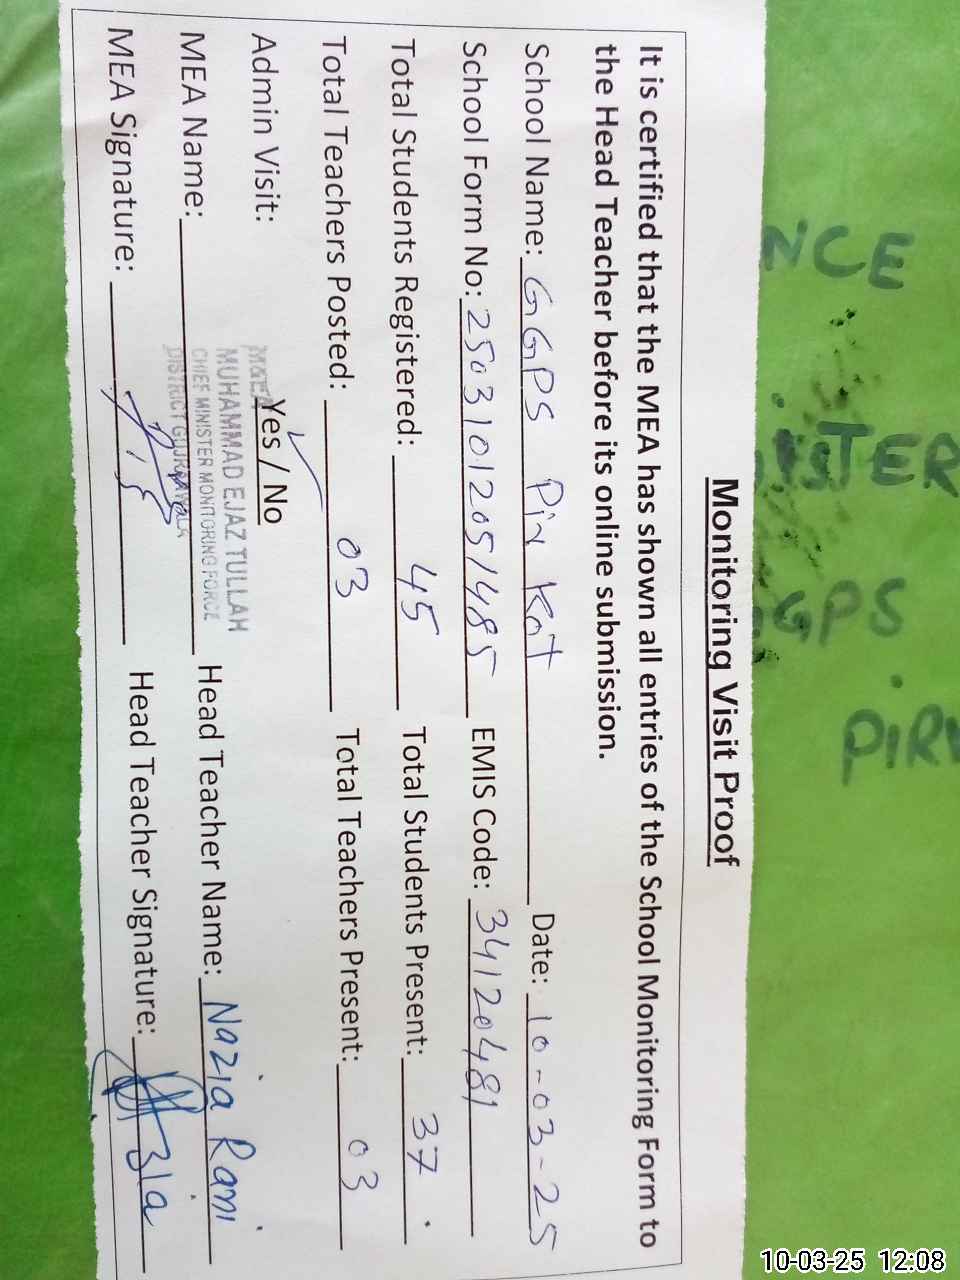 Monitoring Visit Proof
It is certified that the MEA has shown all entries of the School Monitoring Form to
the Head Teacher before its online submission.
School Name: GGPS Pir Kot Date: 10-03-25
School Form No: 25031012051485 EMIS Code: 34120481
Total Students Registered: 45 Total Students Present: 37
Total Teachers Posted: 03 Total Teachers Present: 03
Admin Visit: Yes / No
MUHAMMAD EJAZ TULLAH
CHIEF MINISTER MONITORING FORCE
MEA Name: Head Teacher Name: Nazia Rani
MEA Signature: Head Teacher Signature:
NCE
STER
GPS
PIR
10-03-25 12:08